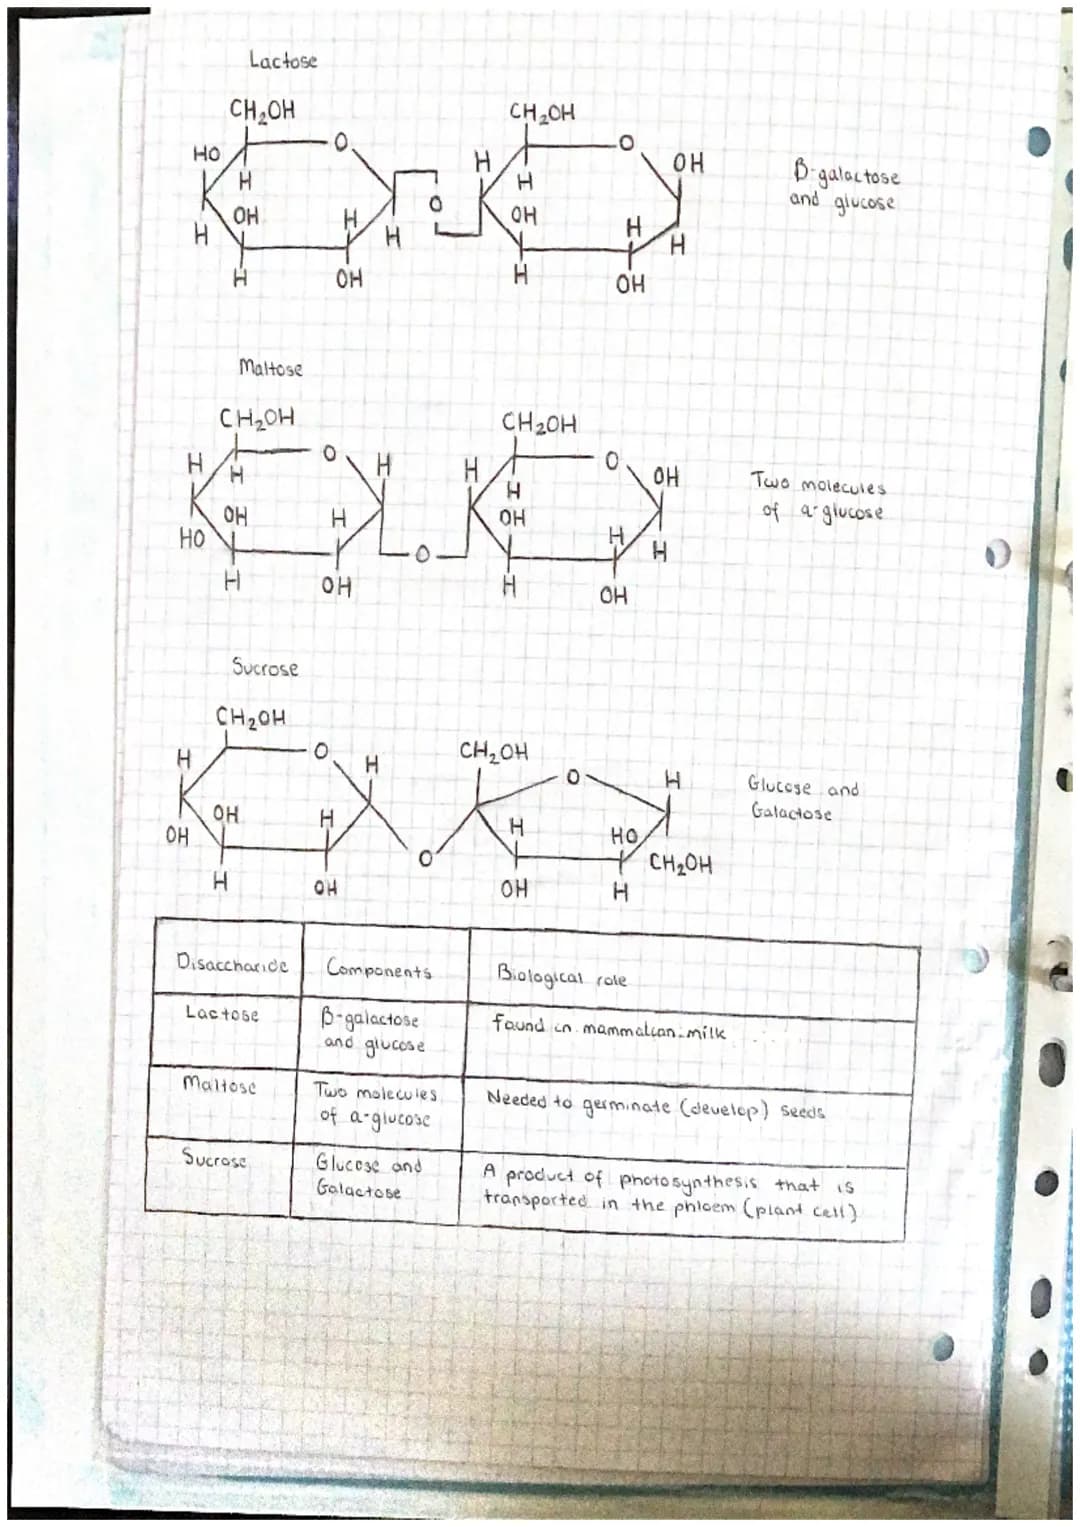 Lactose
CH₂OH
CH₂OH
O
O
HO
H
OH
H
H
β-galactose
and glucose
O
OH
H
OH
H
H
H
H
H
H
OH
H
OH
Maltose
CH₂OH
CH₂OH
O
O
H
H
H
OH
H
H
Two molecules
of α-glucose
OH
H
OH
HO
H
H
O
H
OH
H
OH
Sucrose
CH₂OH
CH₂OH
O
H
H
O
H
Glucose and
Galactose
OH
H
H
HO
OH
O
CH₂OH
H
OH
OH
H
Disaccharide
Components
Biological role
Lactose
β-galactose
and glucose
found in mammalian milk
Maltose
Two molecules
of α-glucose
Needed to germinate (develop) seeds
Sucrose
Glucose and
Galactose
A product of photosynthesis that is
transported in the phloem (plant cell)